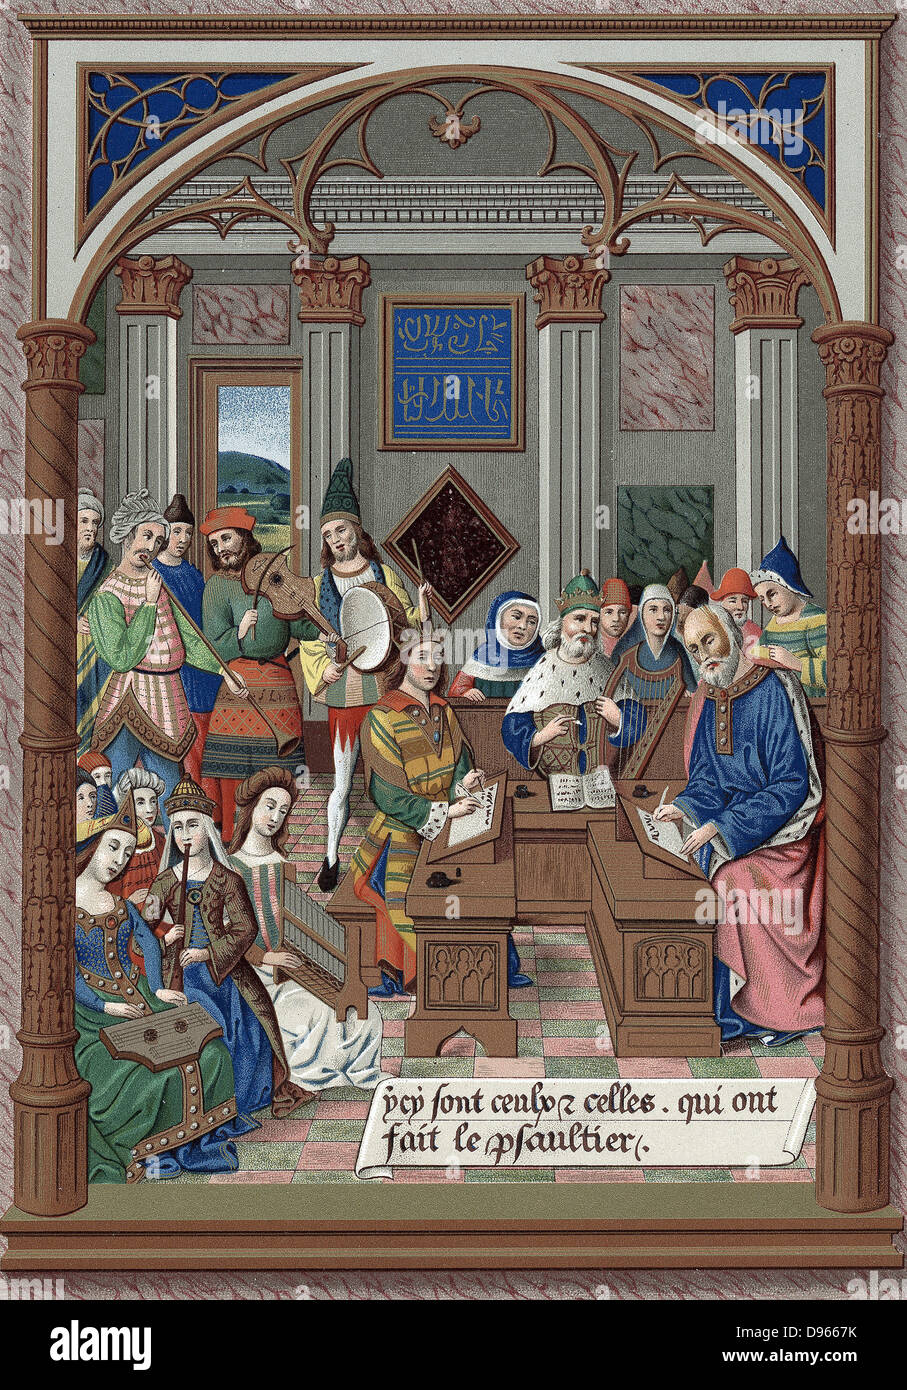 ycy sont ceulx ⁊ celles . qui ont
fait le psaultier .
alamy
Image ID: D9667K
www.alamy.com